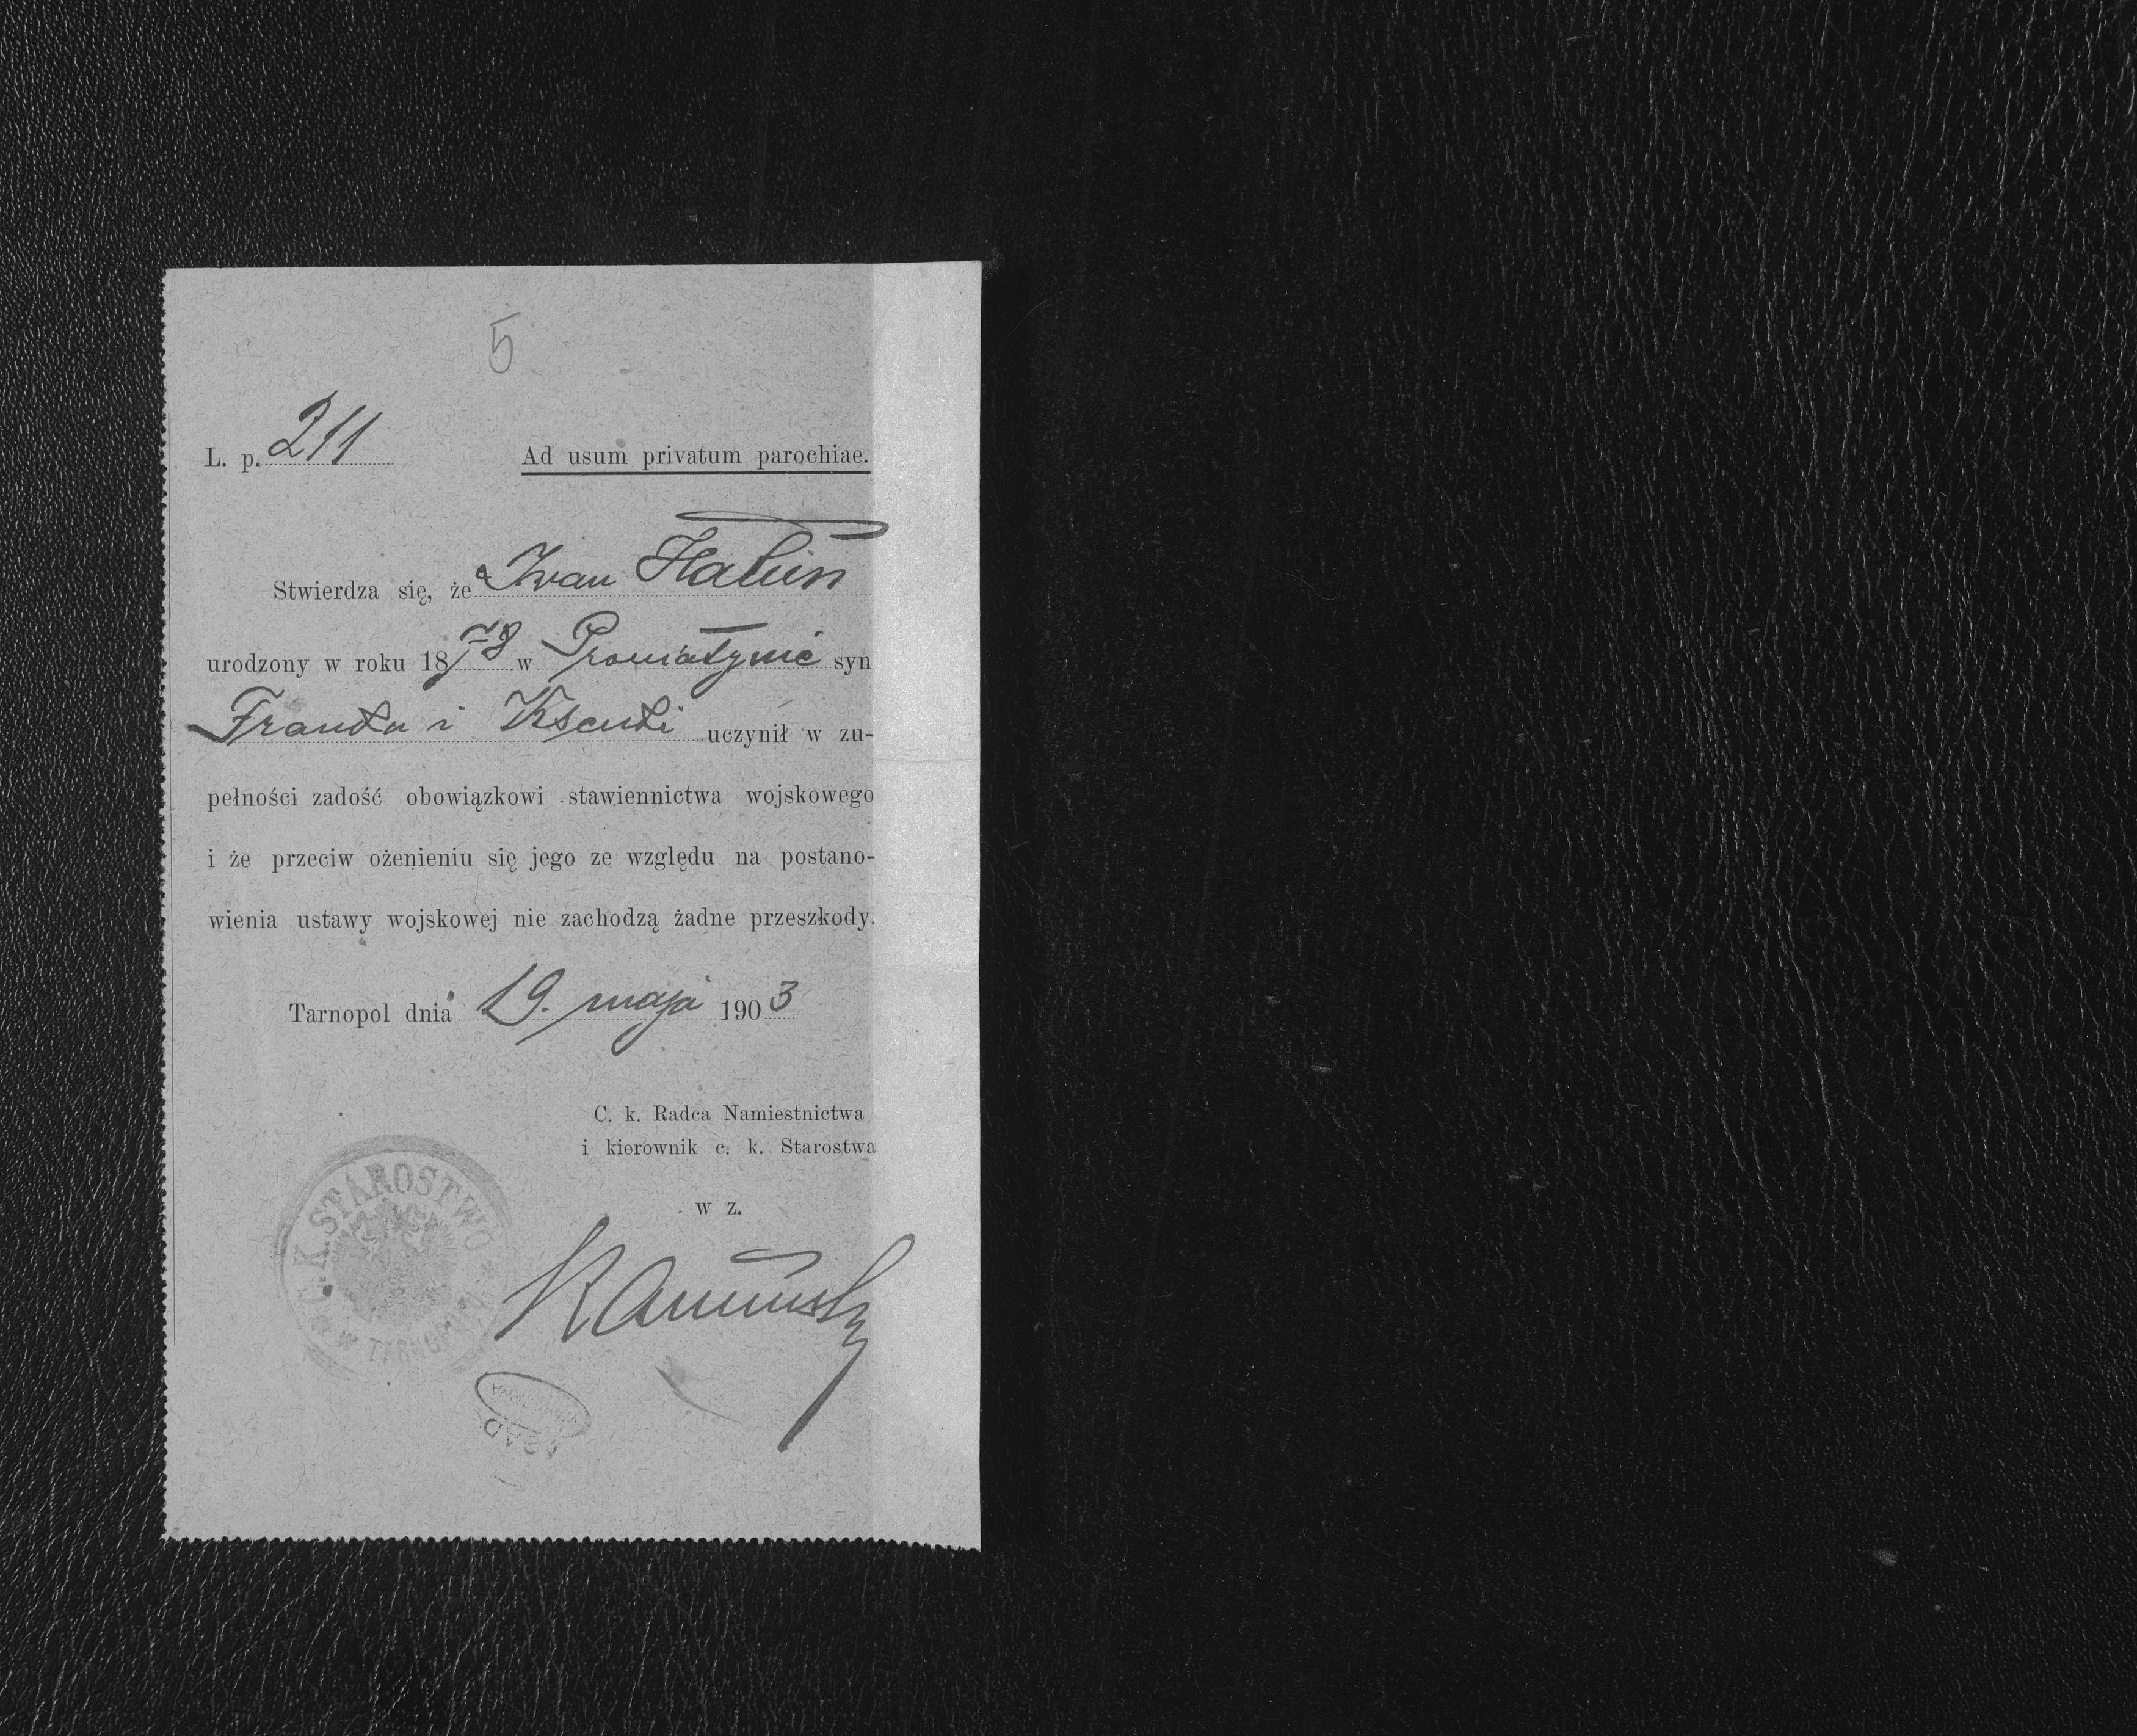 5
L. p. 211
Ad usum privatum parochiae.
Stwierdza się, że Iwan Hałun
urodzony w roku 1878 w Proniatynie syn
Franka i Ksenki uczynił w zu-
pełności zadość obowiązkowi stawiennictwa wojskowego
i że przeciw ożenieniu się jego ze względu na postano-
wienia ustawy wojskowej nie zachodzą żadne przeszkody.
Tarnopol dnia 19. maja 1903
C. k. Radca Namiestnictwa
i kierownik c. k. Starostwa
w z.
C. K. STAROSTWO
W TARNOPOLU
AGAD